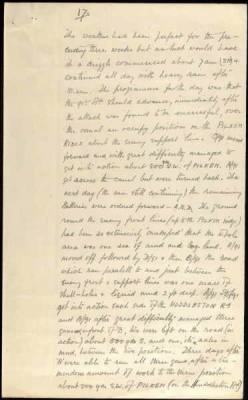 17.
The weather had been perfect for the pre-
ceding three weeks but as luck would have
it a drizzle commenced about 7 am (31st) &
continued all day with heavy rain after
noon. The programme for the day was that
the 91st Bde should advance, immediately after
the attack was found to be successful, over
the canal and occupy position on the PILKEM
RIDGE about the enemy support line.
forward and with great difficulty managed to
get into action about 500x SW. of PILKEM.
got across the canal but were turned back. The
next day (the rain still continuing) the remaining
Batteries were ordered forward. The ground
round the enemy front lines (up to the PILKEM ridge)
had been so extensively crumped that the whole
area was one sea of mud and bog land.
moved off followed by and then by the road
which ran parallel to and just between the
enemy front & support lines was one mass of
shell-holes & liquid mud 2 ft deep.
get into action east of the HUDDLESTON road
and after great difficulty managed three
guns in front of D, his were left on the road (in
action) about 800 yds and one, its axles in
mud, between the two positions. Three days after
were able to run all three guns after a tre-
mendous amount of work to the three position
about 500 yds S.W. of PILKEM (on the Huddleston Rd)